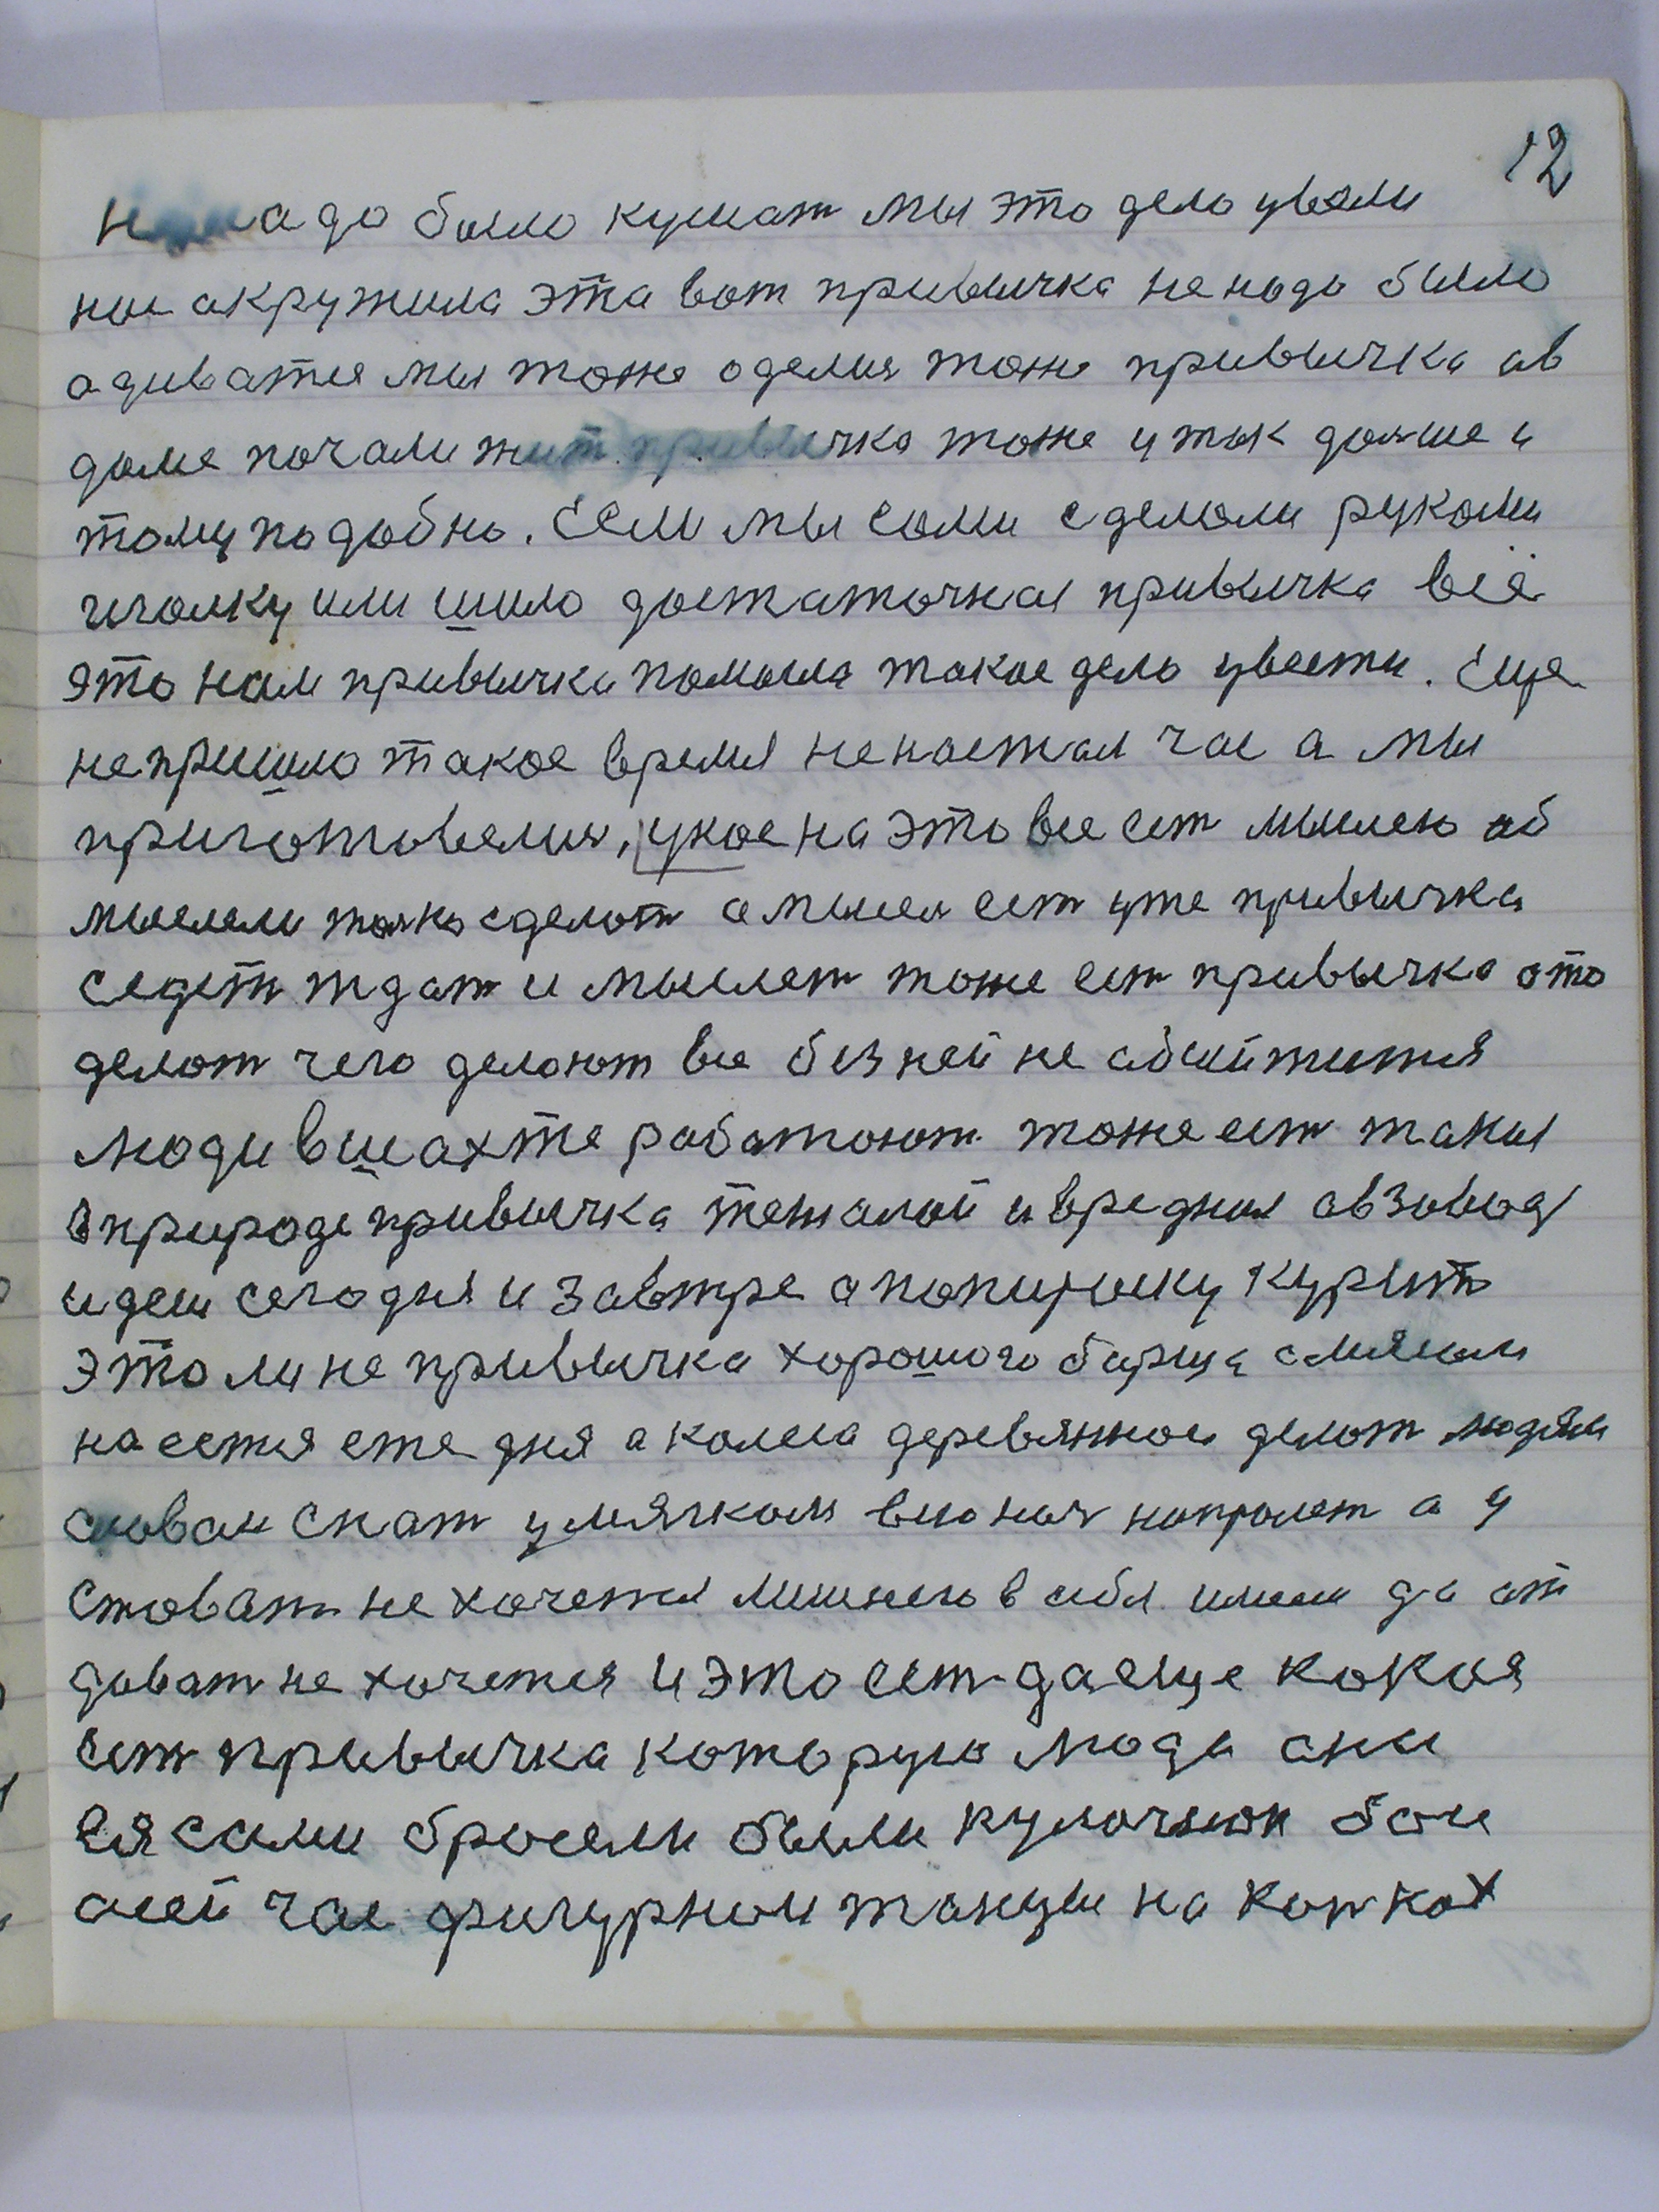 12
надо было кушат мы это дело увяли
нас акружила эта вот привычка не надо было
адиватся мы тоже оделис тоже привычка ав
доме почали жит привычка тоже у так дальше и
тому подобно. Если мы сами сделали руками
иголку или шило достаточная привычка всё
это нам привычка помогла такое дело увести. Еще
непришло такое время ненастал час а мы
приготовелис, у нас на это все ест мыслею об
мыслели толко сделат а мысел ест уже привычка
седет ждат и мыслет тоже ест привычка а то
делат чего делают все без ней не абойтится
люди в шахте работают тоже ест такая
в природе привычка тежалой и вредная ав завод
идеш сегодня и завтре а папироску курит
это ли не привычка хорошого борща смясом
наестся еже дня а колеса деревянное делат людям
Спат у мягком всю ноч напролет а у
стоват не хочется лишнего в себя имеш да от
дават не хочется и это ест да еще какая
ест привычка которую люди они
ея сами бросели были кулочнои бои
сей час фигурнои танцы на конках